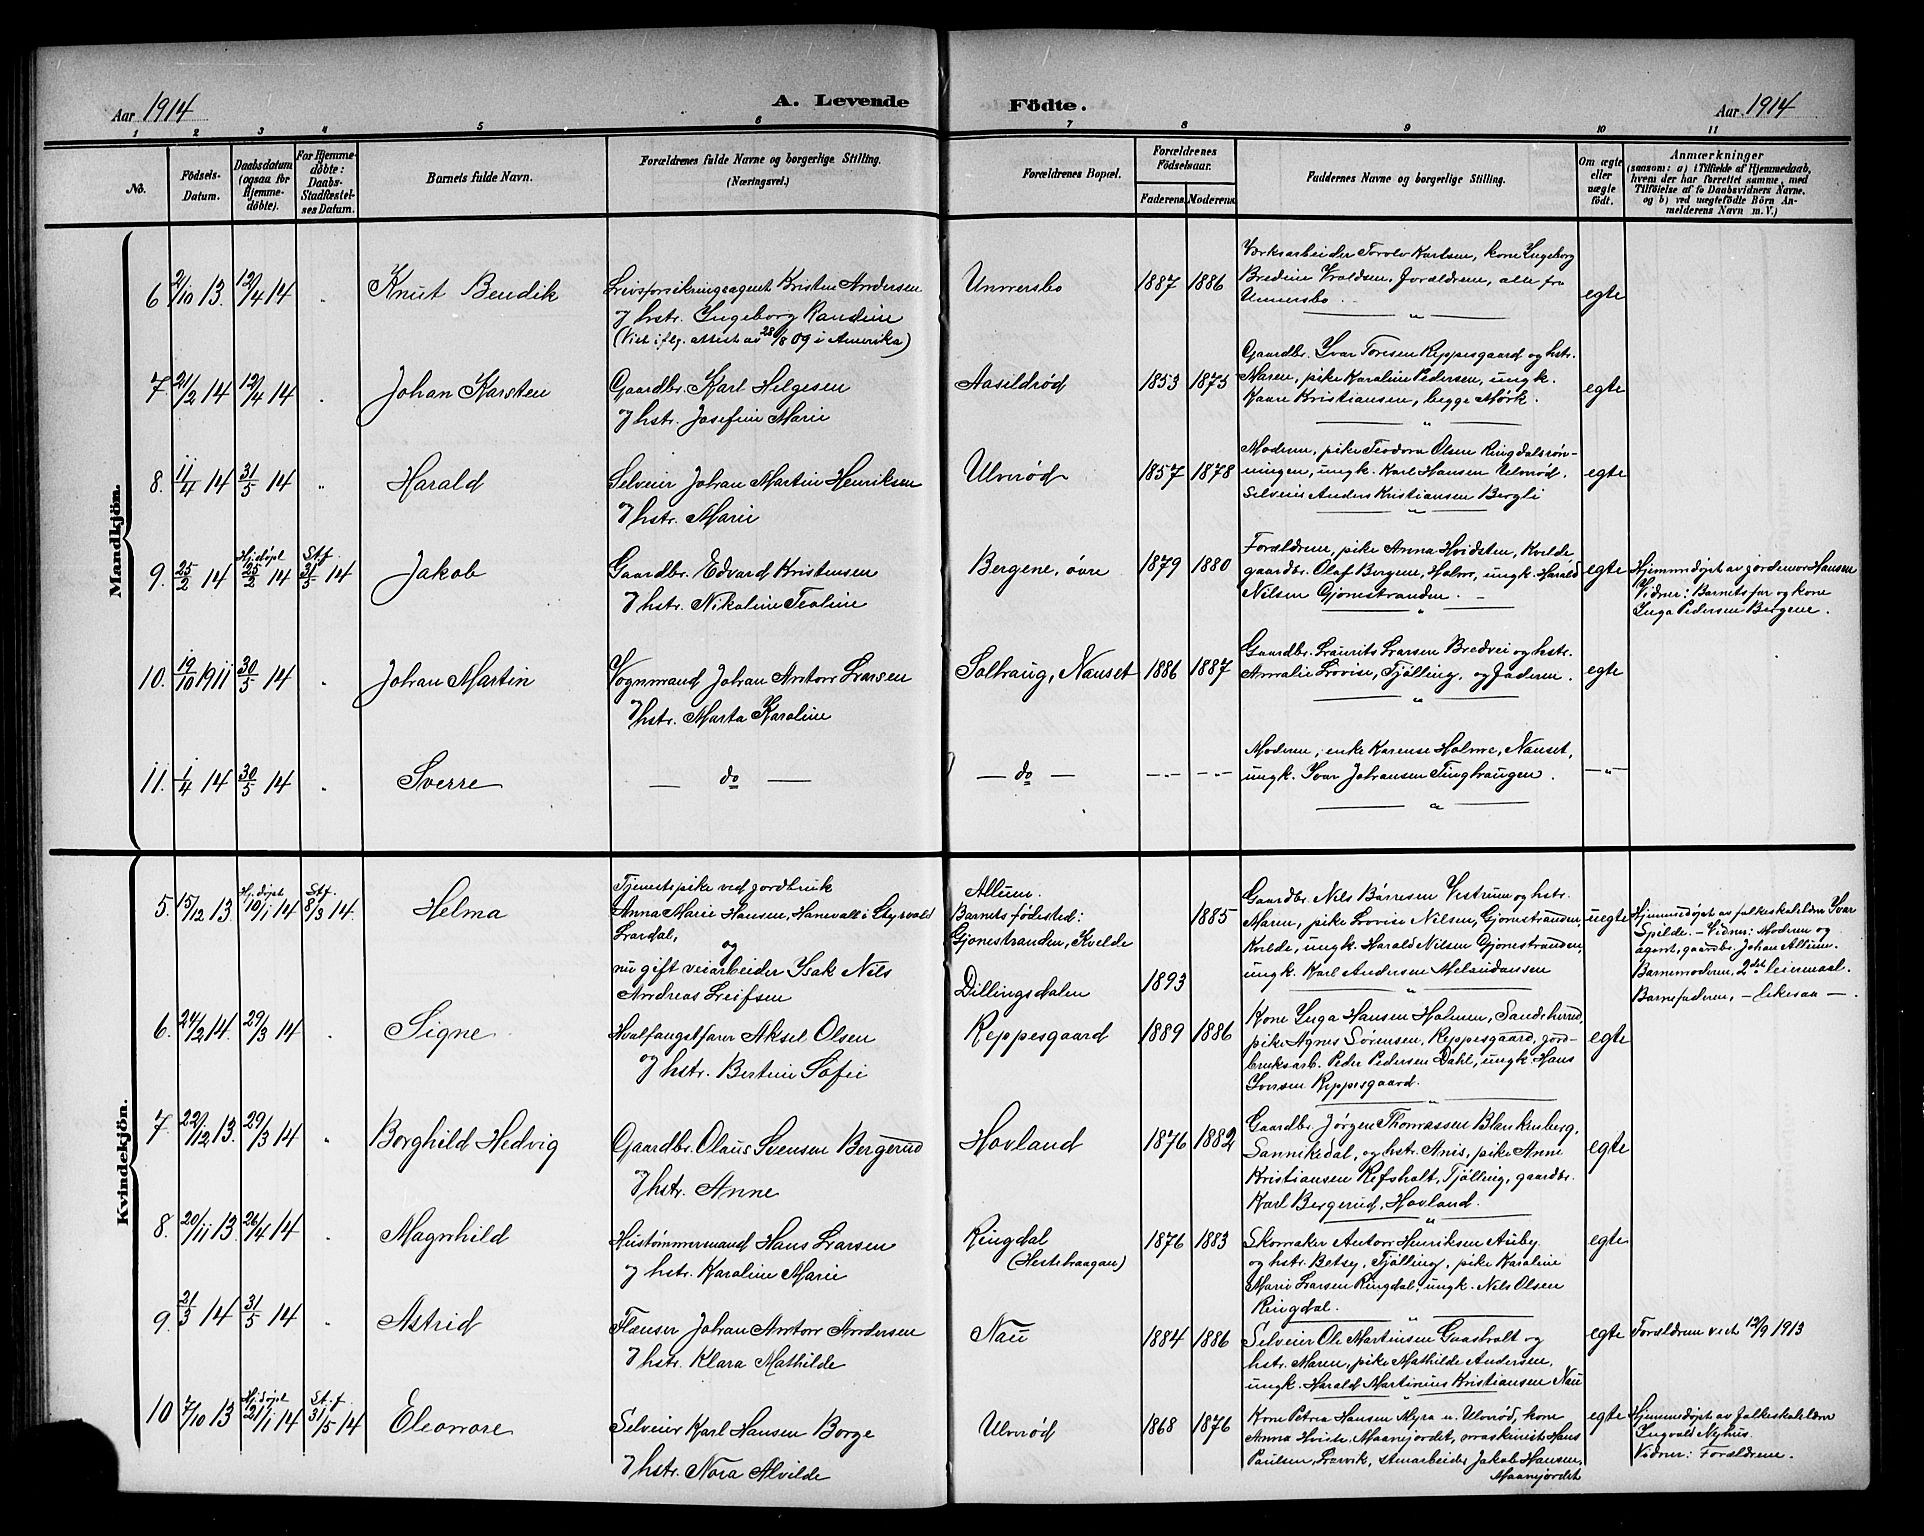 Aar 1914
A. Levende
Födte.
Aar 1914
1 2 3 4 5 6 7 8 9 10 11
No.
Födsels-
Datum.
Daabsdatum
(ogsaa for
Hjemme-
döbte).
For Hjemme-
döbte:
Daabs-
Stadfæstel-
ses Datum.
Barnets fulde Navn.
Forældrenes fulde Navne og borgerlige Stilling.
(Næringsvei.)
Forældrenes Bopæl.
Forældrenes
Födselsaar.
Faderens. Moderens.
Faddernes Navne og borgerlige Stilling.
Om ægte
eller
uægte
födt.
Anmærkninger
(saasom: a) i Tilfælde af Hjemmedaab,
hvem der har forrettet samme, med
Tilföielse af to Daabsvidners Navne.
og b) ved uægtefödte Börn An-
melderens Navn m. V.)
Mandkjön.
6 2/10 13. 12/4 14 " Knut Bendik
Livsforsikringsagent Kristen Andersen
og hstr. Ingeborg Randine
(Viet iflg. attest av 28/8 09 i Amerika)
Unnersbo 1887 1886
Verksarbeider Torolv Karlsen, kone Ingeborg
Bredine Vraldsen, forældrene, alle fra
Unnersbo.
egte
7. 21/2 14 12/4 14 " Johan Karsten
Gaardbr. Karl Helgesen
og hstr. Josefine Marie
Aasildrød 1853 1875
Gaardbr. Ivar Toresen Reppesgaard og hstr.
Maren, pike Karoline Pedersen, ungk.
Kaare Kristiansen, begge Mørk.
egte
8. 11/4 14 31/5 14 " Harald
Selveier Johan Martin Henriksen
og hstr. Marie
Ulvrød 1857 1878
Moderen, pike Teodora Olsen Ringdalsrøn-
ningen, ungk. Karl Hansen Ulvrød,
Selveier Anders Kristiansen Bergli
egte
9. 25/2 14 Hj.døpt 25/2 14 Stf. 31/5 14 Jakob
Gaardbr. Edvard Kristensen
og hstr. Nikoline Teoline
Bergene, øvre 1879 1880
Forældrene, pike Anna Hvidsten, Kvelde
gaardbr. Olaf Bergene, Holm, ungk. Harald
Nilsen Gjønestranden.
egte
Hjemmedøpt av jordemor Hansen
Vidner: Barnets far og kone
Inga Pedersen Bergene.
10. 19/10 1911 30/5 14 " Johan Martin
Vognmand Johan Anton Larsen
og hstr. Marta Karoline
Solhaug, Nanset 1886 1887
Gaardbr. Laurits Larsen Bredvei og hstr.
Amalie Lovise, Tjølling, og faderen.
egte
11. 1/4 14 30/5 14 " Sverre
— do —
— do —
Moderen, enke Karense Holme, Nanset,
ungk. Ivar Johansen Tinghaugen.
—"—
Kvindekjön.
5. 15/12 13 Hj.døpt 10/1 14 Stf. 8/3 14. Helma
Tjenestepike ved jordbruk
Anna Marie Hansen, Hanevall i Styrvold
Lardal,
og
nu gift veiarbeider Isak Nils
Andreas Leifsen
Allum.
Barnets fødested:
Gjønestranden, Kvelde
Dillingsdalen
1893 1885
Gaardbr. Nils Børresen Vestrum og hstr.
Maren, pike Lovise Nilsen, Gjønestranden,
Kvelde, ungk. Harald Nilsen Gjønestranden,
ungk. Karl Andersen
uegte
Hjemmedøpt av folkeskolelærer Ivar
Spilde. – Vidner: Moderen og
agent, gaardbr. Johan Allum.
Barnemoderen, 2det leiermaal.
Barnefaderen, – likesaa –.
6. 24/2 14. 29/3 14 " Signe
Hvalfangstfarer Aksel Olsen
og hstr. Bertine Sofie
Reppesgaard 1889 1886
Kone Inga Hansen Holmen, Sandeherred,
pike Agnes Sørensen, Reppesgaard, jord-
bruksarb. Peder Pedersen Dahl, ungk Hans
Iversen Reppesgaard.
egte
7. 22/12 13. 29/3 14 " Borghild Hedvig
Gaardbr. Olaus Svensen Bergerud
og hstr. Anne
Hovland 1876 1882
Gaardbr. Jørgen Thomassen Blankenberg,
Sannikedal, og hstr. Anis, pike Anne
Kristiansen Refsholt, Tjølling, gaardbr.
Karl Bergerud, Hovland.
egte
8. 20/11 13 26/4 14 " Magnhild
Hustømmermand Hans Larsen
og hstr. Karoline Marie
Ringdal
(Hestehaagan)
1876 1883
Skomaker Anton Henriksen Auby
og hstr. Betsy, Tjølling, pike Karoline
Marie Larsen Ringdal, ungk. Nils Olsen
Ringdal.
egte
9. 21/3 14 31/5 14 " Astrid
Flænser Johan Anton Andersen
og hstr. Klara Mathilde
Nau 1884 1886
Selveier Ole Martinsen Gaasholt og
hstr. Maren, pike Mathilde Andersen,
ungk. Harald Martinius Kristiansen Nau
egte
Forældrene viet 12/9 1913
10 7/10 13 Hj.døpt 21/1 14 St.f. 31/5 14 Eleonore
Selveier Karl Hansen Borge
og hstr. Nora Alvilde
Ulvrød 1868 1876
Kone Petra Hansen Myra u. Ulvrød, kone
Anna Hvitr. Maanejordet, maskinist Hans
Paulsen, Larvik, stenarbeider Jakob Hansen,
Maanejordet
egte
Hjemmedøpt av folkeskolelærer
Ingvald Nyhus.
Vidner: Forældrene.